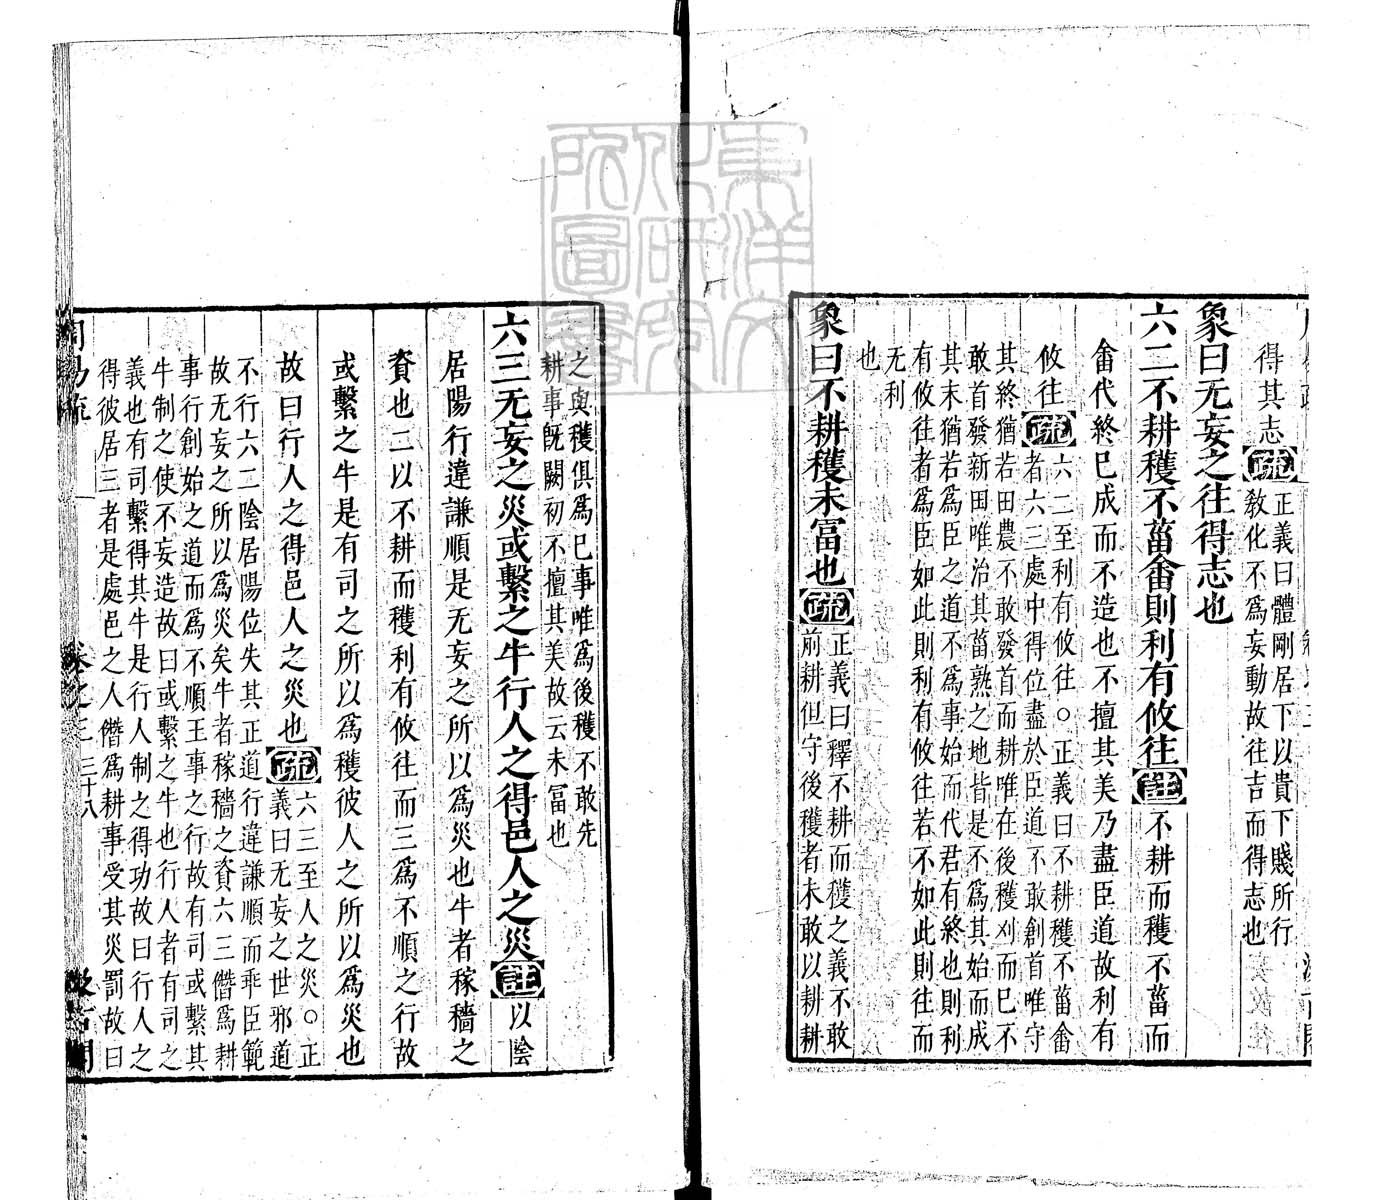 得其志疏正義曰體剛居下以貴下賤所行
教化不爲妄動故往吉而得志也
象曰无妄之往得志也
六二不耕穫不菑畬則利有攸往註不耕而穫不菑而
畬代終已成而不造也不擅其美乃盡臣道故利有
攸往疏六二至利有攸往○正義曰不耕穫不菑畬
者六三處中得位盡於臣道不敢創首唯守
其終猶若田農不敢發首而耕唯在後穫刈而已不
敢首發新田唯治其菑熟之地皆是不爲其始而成
其末猶若爲臣之道不爲事始而代君有終也則利
有攸往者爲臣如此則利有攸往若不如此則往而
无利
也
象曰不耕穫未富也疏正義曰釋不耕而穫之義不敢
前耕但守後穫者未敢以耕耕
之與穫俱爲已事唯爲後穫不敢先
耕事既闕初不擅其美故云未富也
六三无妄之災或繫之牛行人之得邑人之災註以陰
居陽行違謙順是无妄之所以爲災也牛者稼穡之
資也二以不耕而穫利有攸往而三爲不順之行故
或繫之牛是有司之所以爲穫彼人之所以爲災也
故曰行人之得邑人之災也疏六三至人之災○正
義曰无妄之世邪道
不行六二陰居陽位失其正道行違謙順而乖臣範
故无妄之所以爲災矣牛者稼穡之資六三僭爲耕
事行創始之道而爲不順王事之行故有司或繫其
牛制之使不妄造故曰或繫之牛也行人者有司之
義也有司繫得其牛是行人制之得功故曰行人之
得彼居三者是處邑之人僭爲耕事受其災罰故曰
周易疏 卷之三 三十八 汲古閣
東洋文化研究所圖書